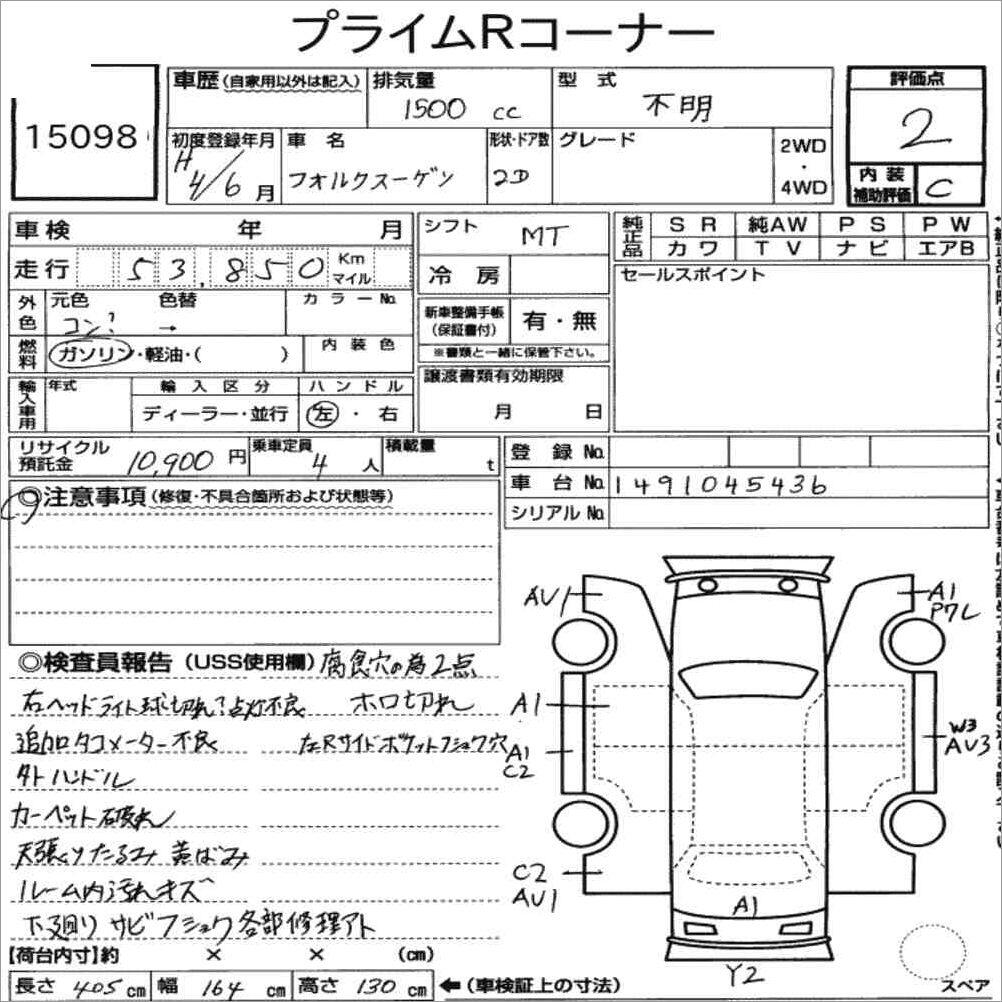 プライムRコーナー
15098
車歴(自家用以外は記入)
排気量
1500 cc
型式
不明
評価点
2
初度登録年月
H4/6月
車名
フォルクスーゲン
形状・ドア数
2D
グレード
2WD
・
4WD
内装
補助評価
C
車検 年 月
走行 53,850 Km
マイル
シフト
MT
冷房
純正品
SR 純AW PS PW
カワ TV ナビ エアB
セールスポイント
外色
元色 色替 カラーNo.
コン? →
新車整備手帳
(保証書付)
有・無
※書類と一緒に保管下さい。
燃料
ガソリン・軽油・( )
内装色
輸入車用
年式
輸入区分
ディーラー・並行
ハンドル
左・右
譲渡書類有効期限
月 日
リサイクル
預託金
10,900円
乗車定員
4人
積載量
t
登録No.
車台No. 1491045436
シリアルNo.
◎注意事項(修復・不具合箇所および状態等)
◎検査員報告(USS使用欄)腐食穴の為2点
右ヘッドライト球切れ?点灯不良 ホロ切れ
追加タコメーター不良 左Rサイドポケットフショク穴
外ハンドル
カーペット破れ
天張りたるみ 黄ばみ
ルーム内汚れキズ
下廻り サビフショク各部修理アト
AV1
A1
P7L
A1
A1
C2
W3
AV3
C2
AV1
A1
Y2
スペア
【荷台内寸】約 × × (cm)
長さ 405 cm 幅 164 cm 高さ 130 cm ←(車検証上の寸法)